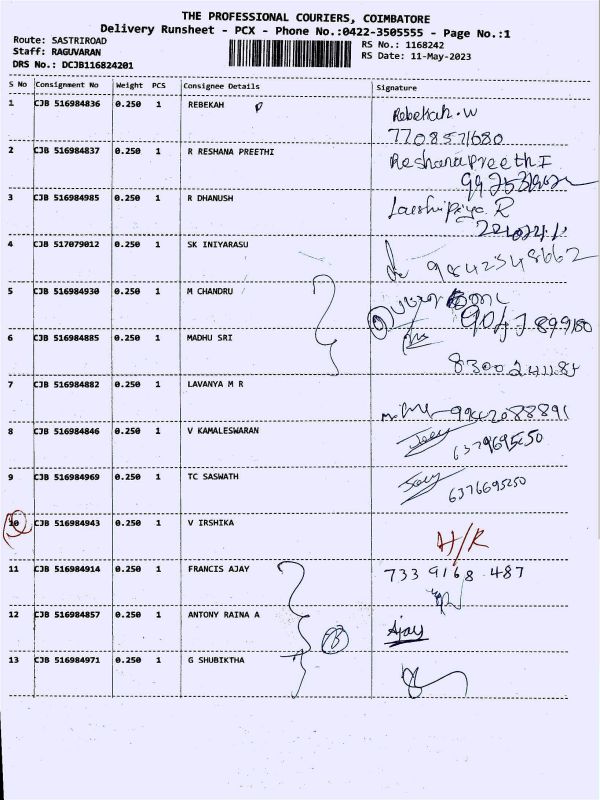 THE PROFESSIONAL COURIERS, COIMBATORE
Delivery Runsheet - PCX - Phone No.:0422-3505555 - Page No.:1
Route: SASTRIROAD
Staff: RAGUVARAN
DRS No.: DCJB116824201
RS No.: 1168242
RS Date: 11-May-2023
S No Consignment No Weight PCS Consignee Details Signature
1 CJB 516984836 0.250 1 REBEKAH Rebekah.W
7708571680
2 CJB 516984837 0.250 1 R RESHANA PREETHI Reshana Preethi I
3 CJB 516984985 0.250 1 R DHANUSH
4 CJB 517079012 0.250 1 SK INIYARASU 9842348662
5 CJB 516984930 0.250 1 M CHANDRU
6 CJB 516984885 0.250 1 MADHU SRI
7 CJB 516984882 0.250 1 LAVANYA M R
8 CJB 516984846 0.250 1 V KAMALESWARAN
9 CJB 516984969 0.250 1 TC SASWATH
6376695250
10 CJB 516984943 0.250 1 V IRSHIKA
11 CJB 516984914 0.250 1 FRANCIS AJAY 733 9168 487
12 CJB 516984857 0.250 1 ANTONY RAINA A Ajay
13 CJB 516984971 0.250 1 G SHUBIKTHA